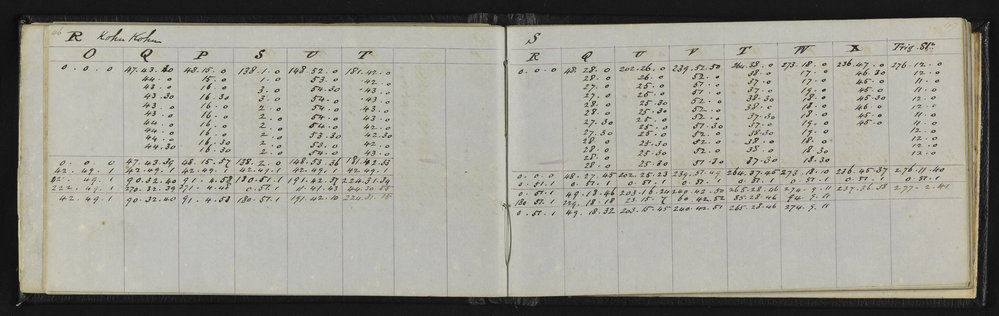 46 R Kohu Kohu
O Q P S U T
0.0.0 47.43.30 48.15.0 138.1.0 148.52.0 181.42.0
44.0 15.0 1.0 53.0 42.0
43.0 16.0 3.0 54.30 43.0
43.30 16.30 3.0 54.0 43.0
43.0 16.0 2.0 54.0 43.0
43.0 16.0 2.0 54.0 43.0
44.0 16.0 2.0 54.0 42.0
44.0 16.0 2.0 53.30 42.30
44.0 16.30 2.0 53.0 42.0
44.30 16.30 2.0 54.0 43.0
0.0.0 47.43.39 48.15.57 138.2.0 148.53.36 181.42.33
42.49.1 42.49.1 42.49.1 42.49.1 42.49.1 42.49.1
42.49.1 90.32.40 91.4.58 180.51.1 191.42.37 224.31.34
222.49.1 270.32.39 271.4.48 0.51.1 11.41.43 44.30.55
42.49.1 90.32.40 91.4.53 180.51.1 191.42.10 224.31.15
S
R Q U V T W X Trig. Stn
0.0.0 48.28.0 202.26.0 239.52.30 264.38.0 273.18.0 236.47.0 276.12.0
28.0 26.0 52.0 38.0 17.0 46.30 12.0
27.0 25.0 51.0 37.0 17.0 45.0 11.0
27.0 26.0 51.0 37.0 19.0 45.0 11.0
28.0 25.30 52.0 38.30 18.0 45.30 12.0
28.0 25.30 52.0 38.0 18.0 46.0 12.0
27.30 25.0 51.30 37.30 18.0 45.0 11.0
27.30 25.0 52.0 37.0 19.0 45.0 11.0
28.0 25.0 52.0 38.30 19.0 12.0
28.0 25.30 52.0 38.0 18.0 12.0
28.0 25.30 51.30 37.30 18.30 12.0
0.0.0 48.27.45 202.25.23 239.51.49 264.37.45 273.18.10 236.45.37 276.11.40
0.51.1 0.51.1 0.51.1 0.51.1 0.51.1 0.51.1 0.51.1 0.51.1
0.51.1 49.18.46 203.16.24 240.42.50 265.28.46 274.9.11 237.36.38 277.2.41
180.51.1 229.18.18 23.15.7 60.42.52 85.28.46 94.9.11
0.51.1 49.18.32 203.15.45 240.42.51 265.28.46 274.9.11